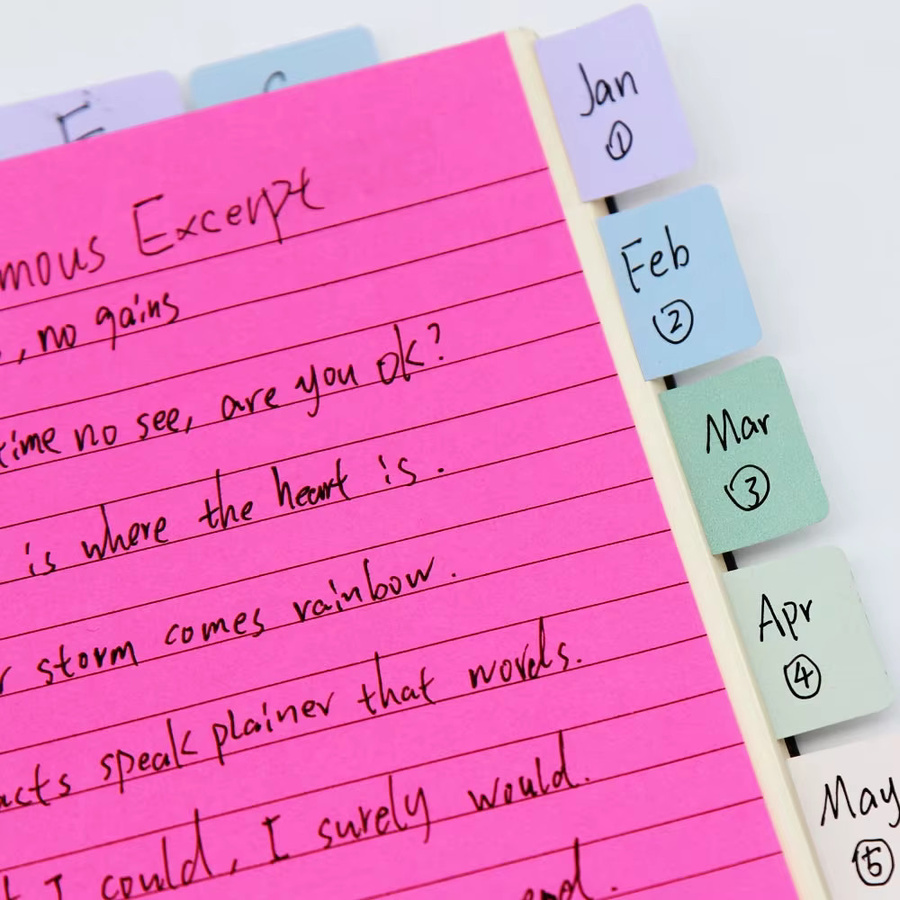 E
Jan
①
mous Excerpt
Feb
②
, no gains
time no see, are you ok?
Mar
③
is where the heart is.
r storm comes rainbow.
Apr
④
acts speak plainer that words.
t I could, I surely would.
May
⑤
end.